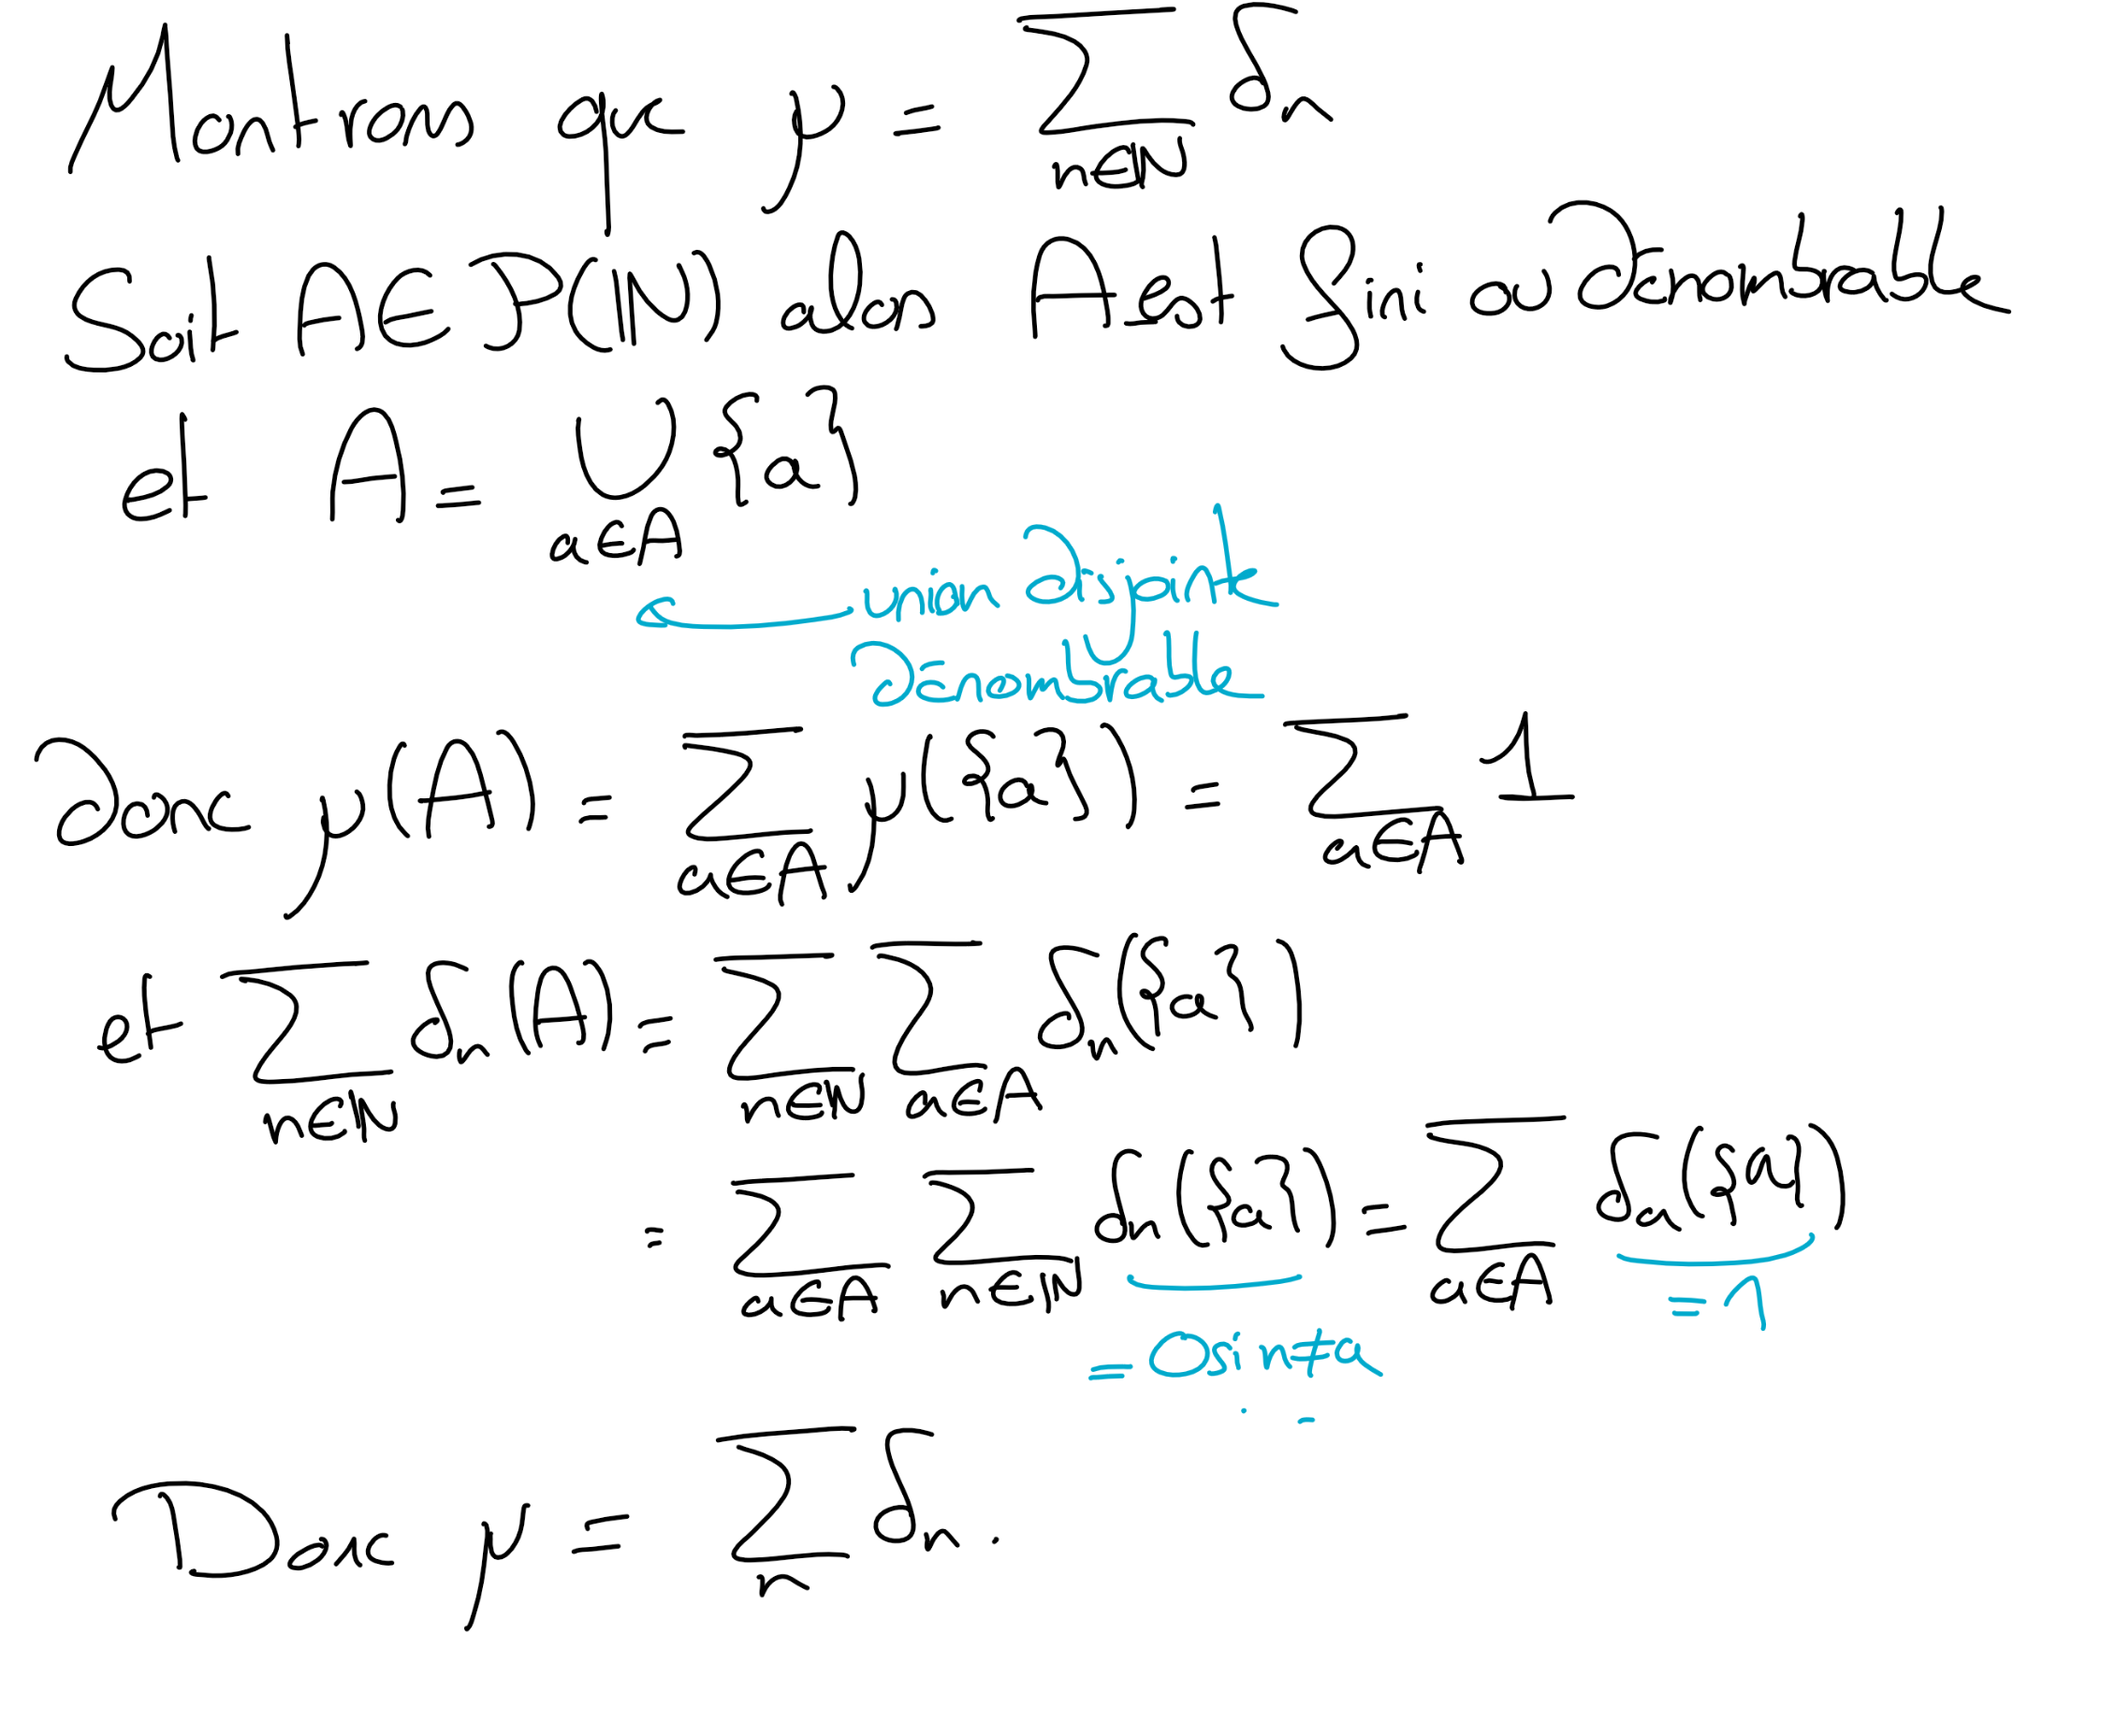 Montrons que μ = ∑_{n∈ℕ} δ_n
Soit A ∈ P(ℕ) alors A est fini ou dénombrable
et A = ∪_{a∈A} {a}
← union disjointe
dénombrable
donc μ(A) = ∑_{a∈A} μ({a}) = ∑_{a∈A} 1
et ∑_{n∈ℕ} δ_n(A) = ∑_{n∈ℕ} ∑_{a∈A} δ_n({a})
= ∑_{a∈A} ∑_{n∈ℕ} δ_n({a}) = ∑_{a∈A} δ_a({a})
= 0 si n≠a
= 1
Donc μ = ∑_n δ_n.